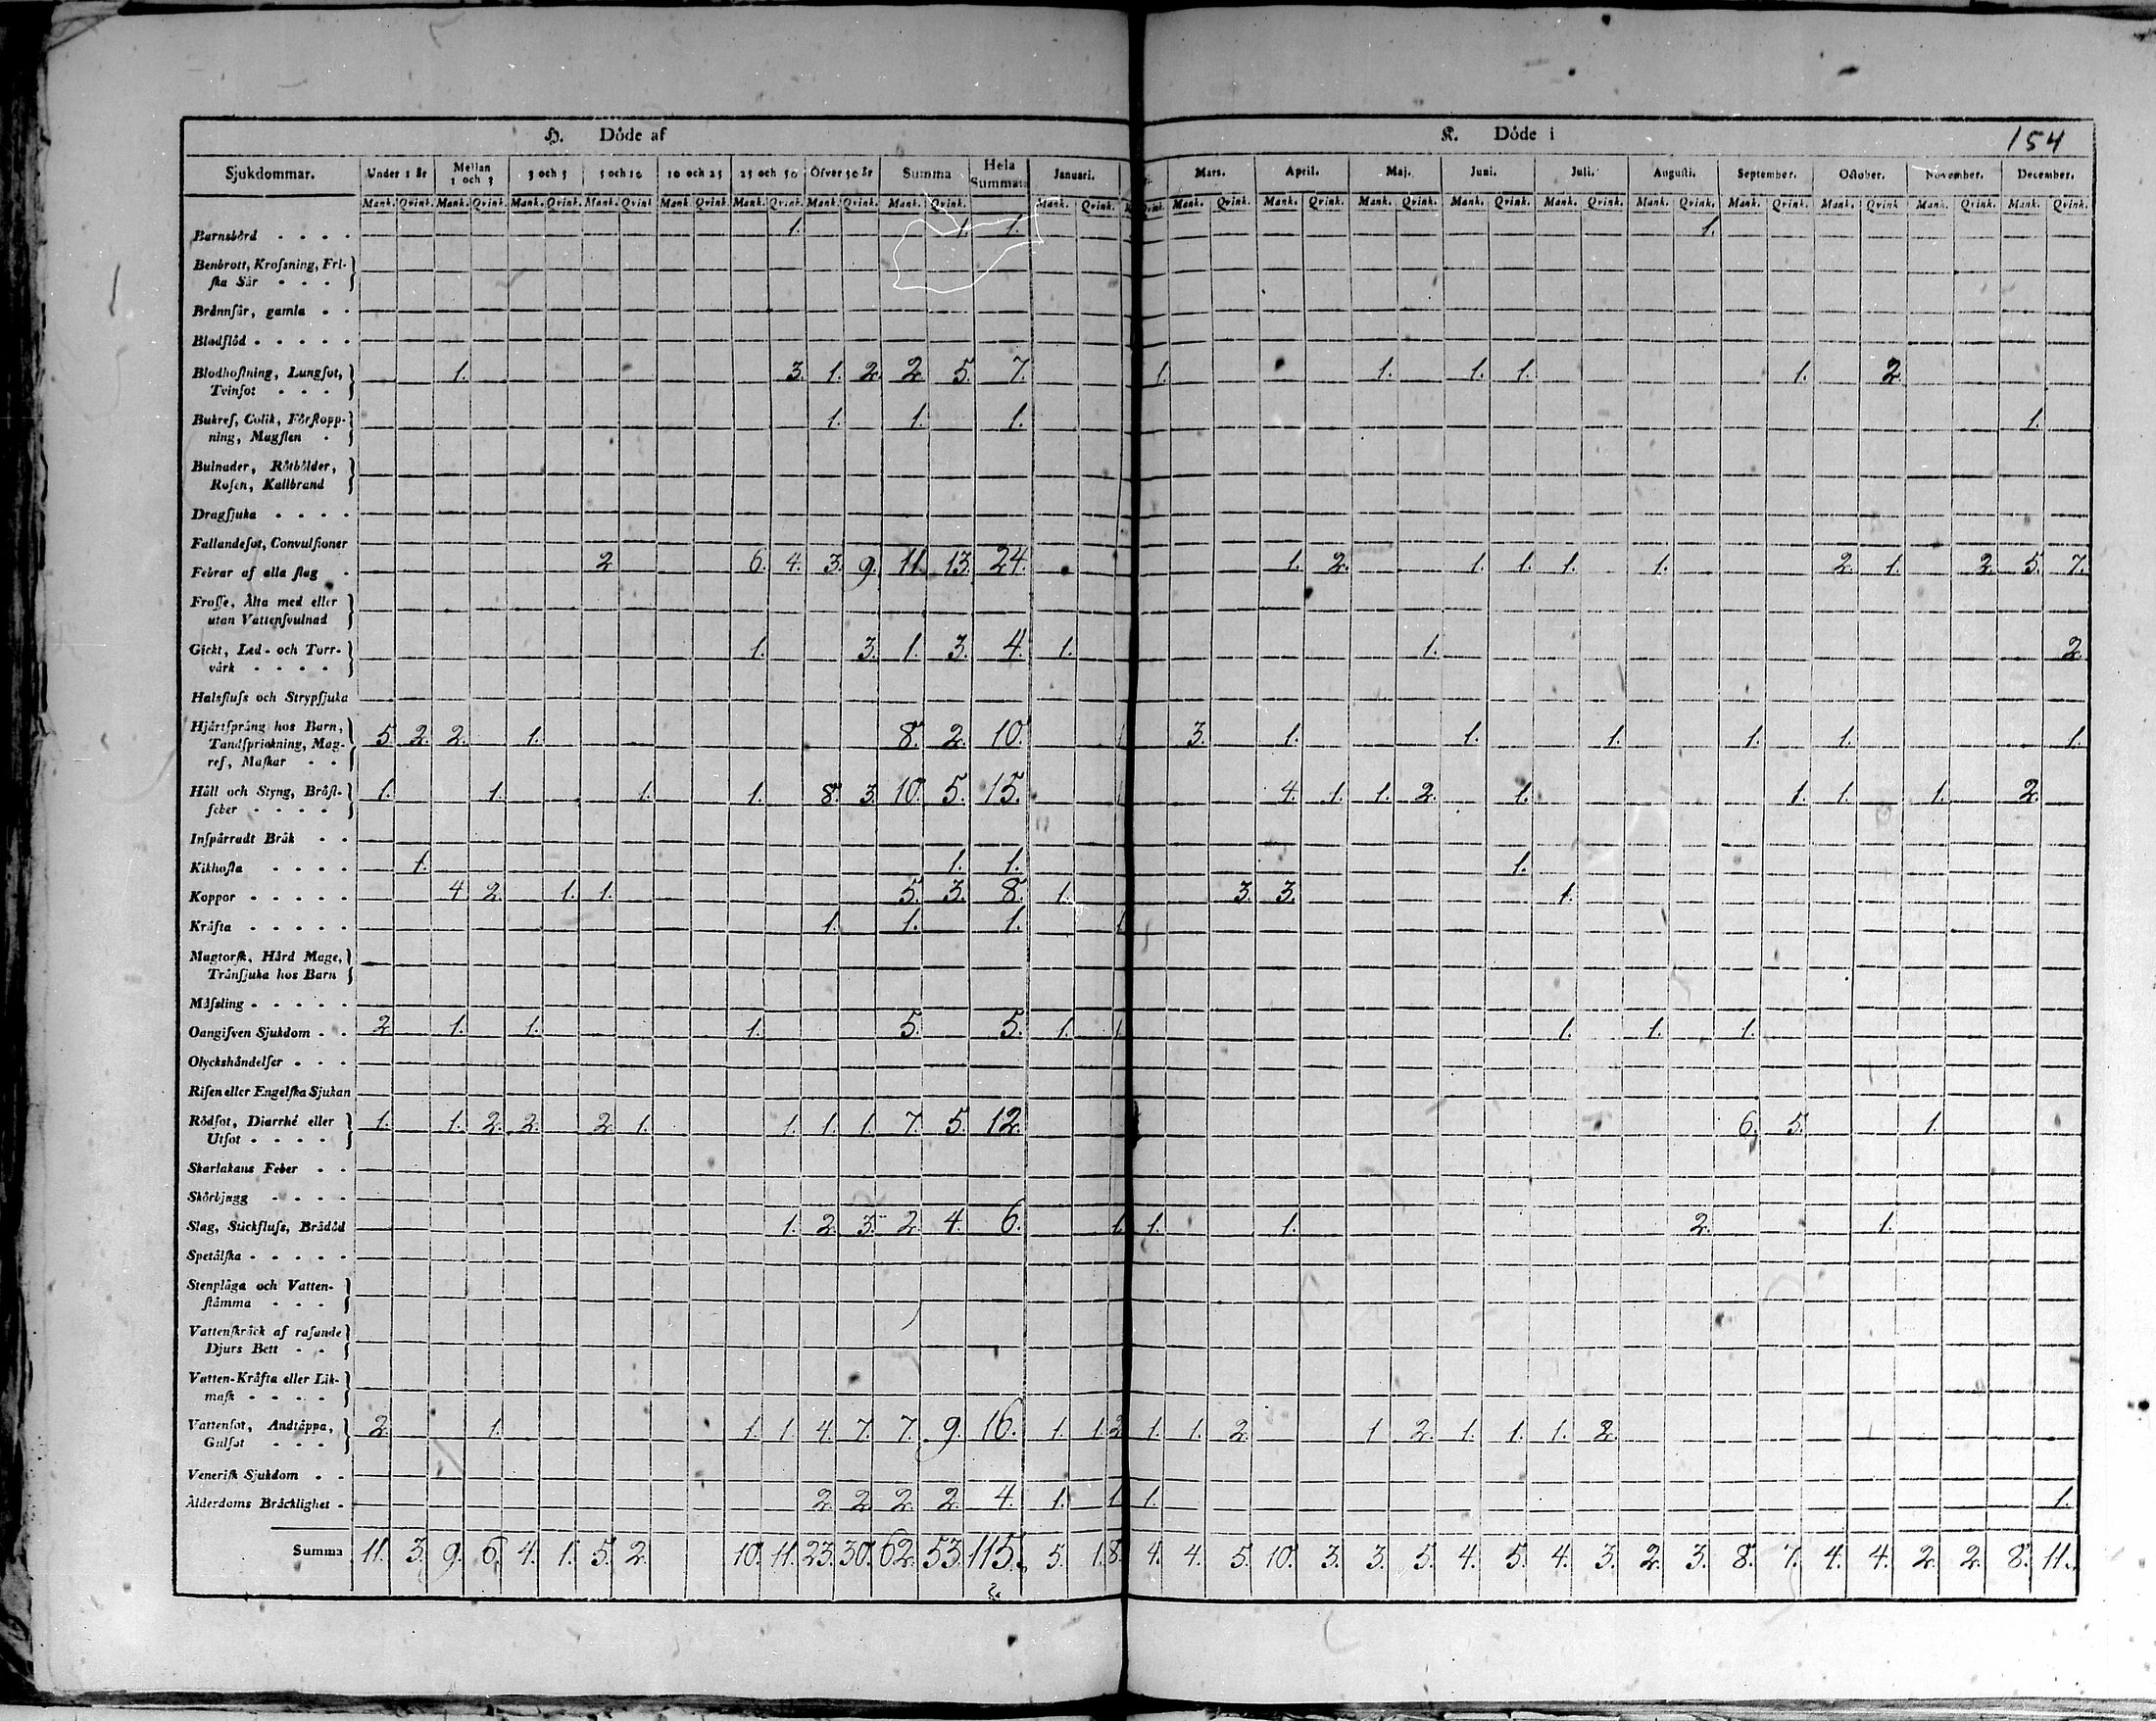 H. Döde af K. Döde i 154
Sjukdommar. Under 1 år Mellan 1 och 3 3 och 5 5 och 10 10 och 25 25 och 50 Öfver 50 år Summa Hela Summan Januari. Mars. April. Maj. Juni. Juli. Augusti. September. October. November. December.
Mank. Qvink. Mank. Qvink. Mank. Qvink. Mank. Qvink. Mank. Qvink. Mank. Qvink. Mank. Qvink. Mank. Qvink. Mank. Qvink. Qvink. Mank. Qvink. Mank. Qvink. Mank. Qvink. Mank. Qvink. Mank. Qvink. Mank. Qvink. Mank. Qvink. Mank. Qvink. Mank. Qvink. Mank. Qvink.
Barnsbörd 1. 1. 1. 1.
Benbrott, Kroſsning, Fri-
ſka Sår
Brännſår, gamla
Blodflöd
Blodhoſtning, Lungſot, 1. 3. 1. 2. 2. 5. 7. 1. 1. 1. 1. 1. 2.
Tvinſot
Bukref, Colik, Förſtopp- 1. 1. 1. 1.
ning, Magſten
Bulnader, Rötbölder,
Roſen, Kallbrand
Dragſjuka
Fallandeſot, Convulſioner
Febrar af alla ſlag 2 6. 4. 3. 9. 11. 13. 24. 1. 2. 1. 1. 1. 1. 2. 1. 2. 5. 7.
Froſſe, Älta med eller
utan Vattenſvulnad
Gickt, Led- och Torr- 1. 3. 1. 3. 4. 1. 1. 2.
värk
Halsfluſs och Strypſjuka
Hjärtſprång hos Barn,
Tandſprickning, Mag- 5. 2. 2. 1. 8. 2. 10. 1 3. 1. 1. 1. 1. 1. 1.
ref, Maſkar
Håll och Styng, Bröſt- 1. 1. 1. 1. 8. 3. 10. 5. 15. 1 4. 1. 1. 2. 1. 1. 1. 1. 2.
feber
Inſpärradt Bråk
Kikhoſta 1. 1. 1. 1.
Koppor 4. 2. 1. 1. 5. 3. 8. 1. 3. 3. 1.
Kräfta 1. 1. 1. 1
Magtorſk, Hård Mage,
Tränſjuka hos Barn
Mäſsling
Oangifven Sjukdom 2 1. 1. 1. 5. 5. 1. 1 1. 1. 1.
Olyckshändelſer
Riſen eller Engelſka Sjukan
Rödſot, Diarrhé eller 1. 1. 2. 2. 2. 1. 1. 1. 1. 7. 5. 12. 6. 5. 1.
Utſot
Skarlakans Feber
Skörbjugg
Slag, Stickfluſs, Brådöd 1. 2. 3. 2. 4. 6. 1. 1. 1. 2. 1.
Spetälſka
Stenplåga och Vatten-
ſtämma
Vattenſkräck af raſande
Djurs Bett
Vatten-Kräfta eller Lik-
maſk
Vattenſot, Andtäppa, 2. 1. 1. 1. 4. 7. 7. 9. 16. 1. 1. 2 1. 1. 2. 1 2. 1. 1. 1. 2.
Gulſot
Veneriſk Sjukdom
Ålderdoms Bräcklighet 2. 2. 2. 2. 4. 1. 1. 1. 1.
Summa 11. 3. 9. 6. 4. 1. 5. 2. 10. 11. 23. 30. 62. 53. 115. 5. 1. 8. 4. 4. 5. 10. 3. 3. 5. 4. 5. 4. 3. 2. 3. 8. 7. 4. 4. 2. 2. 8. 11.